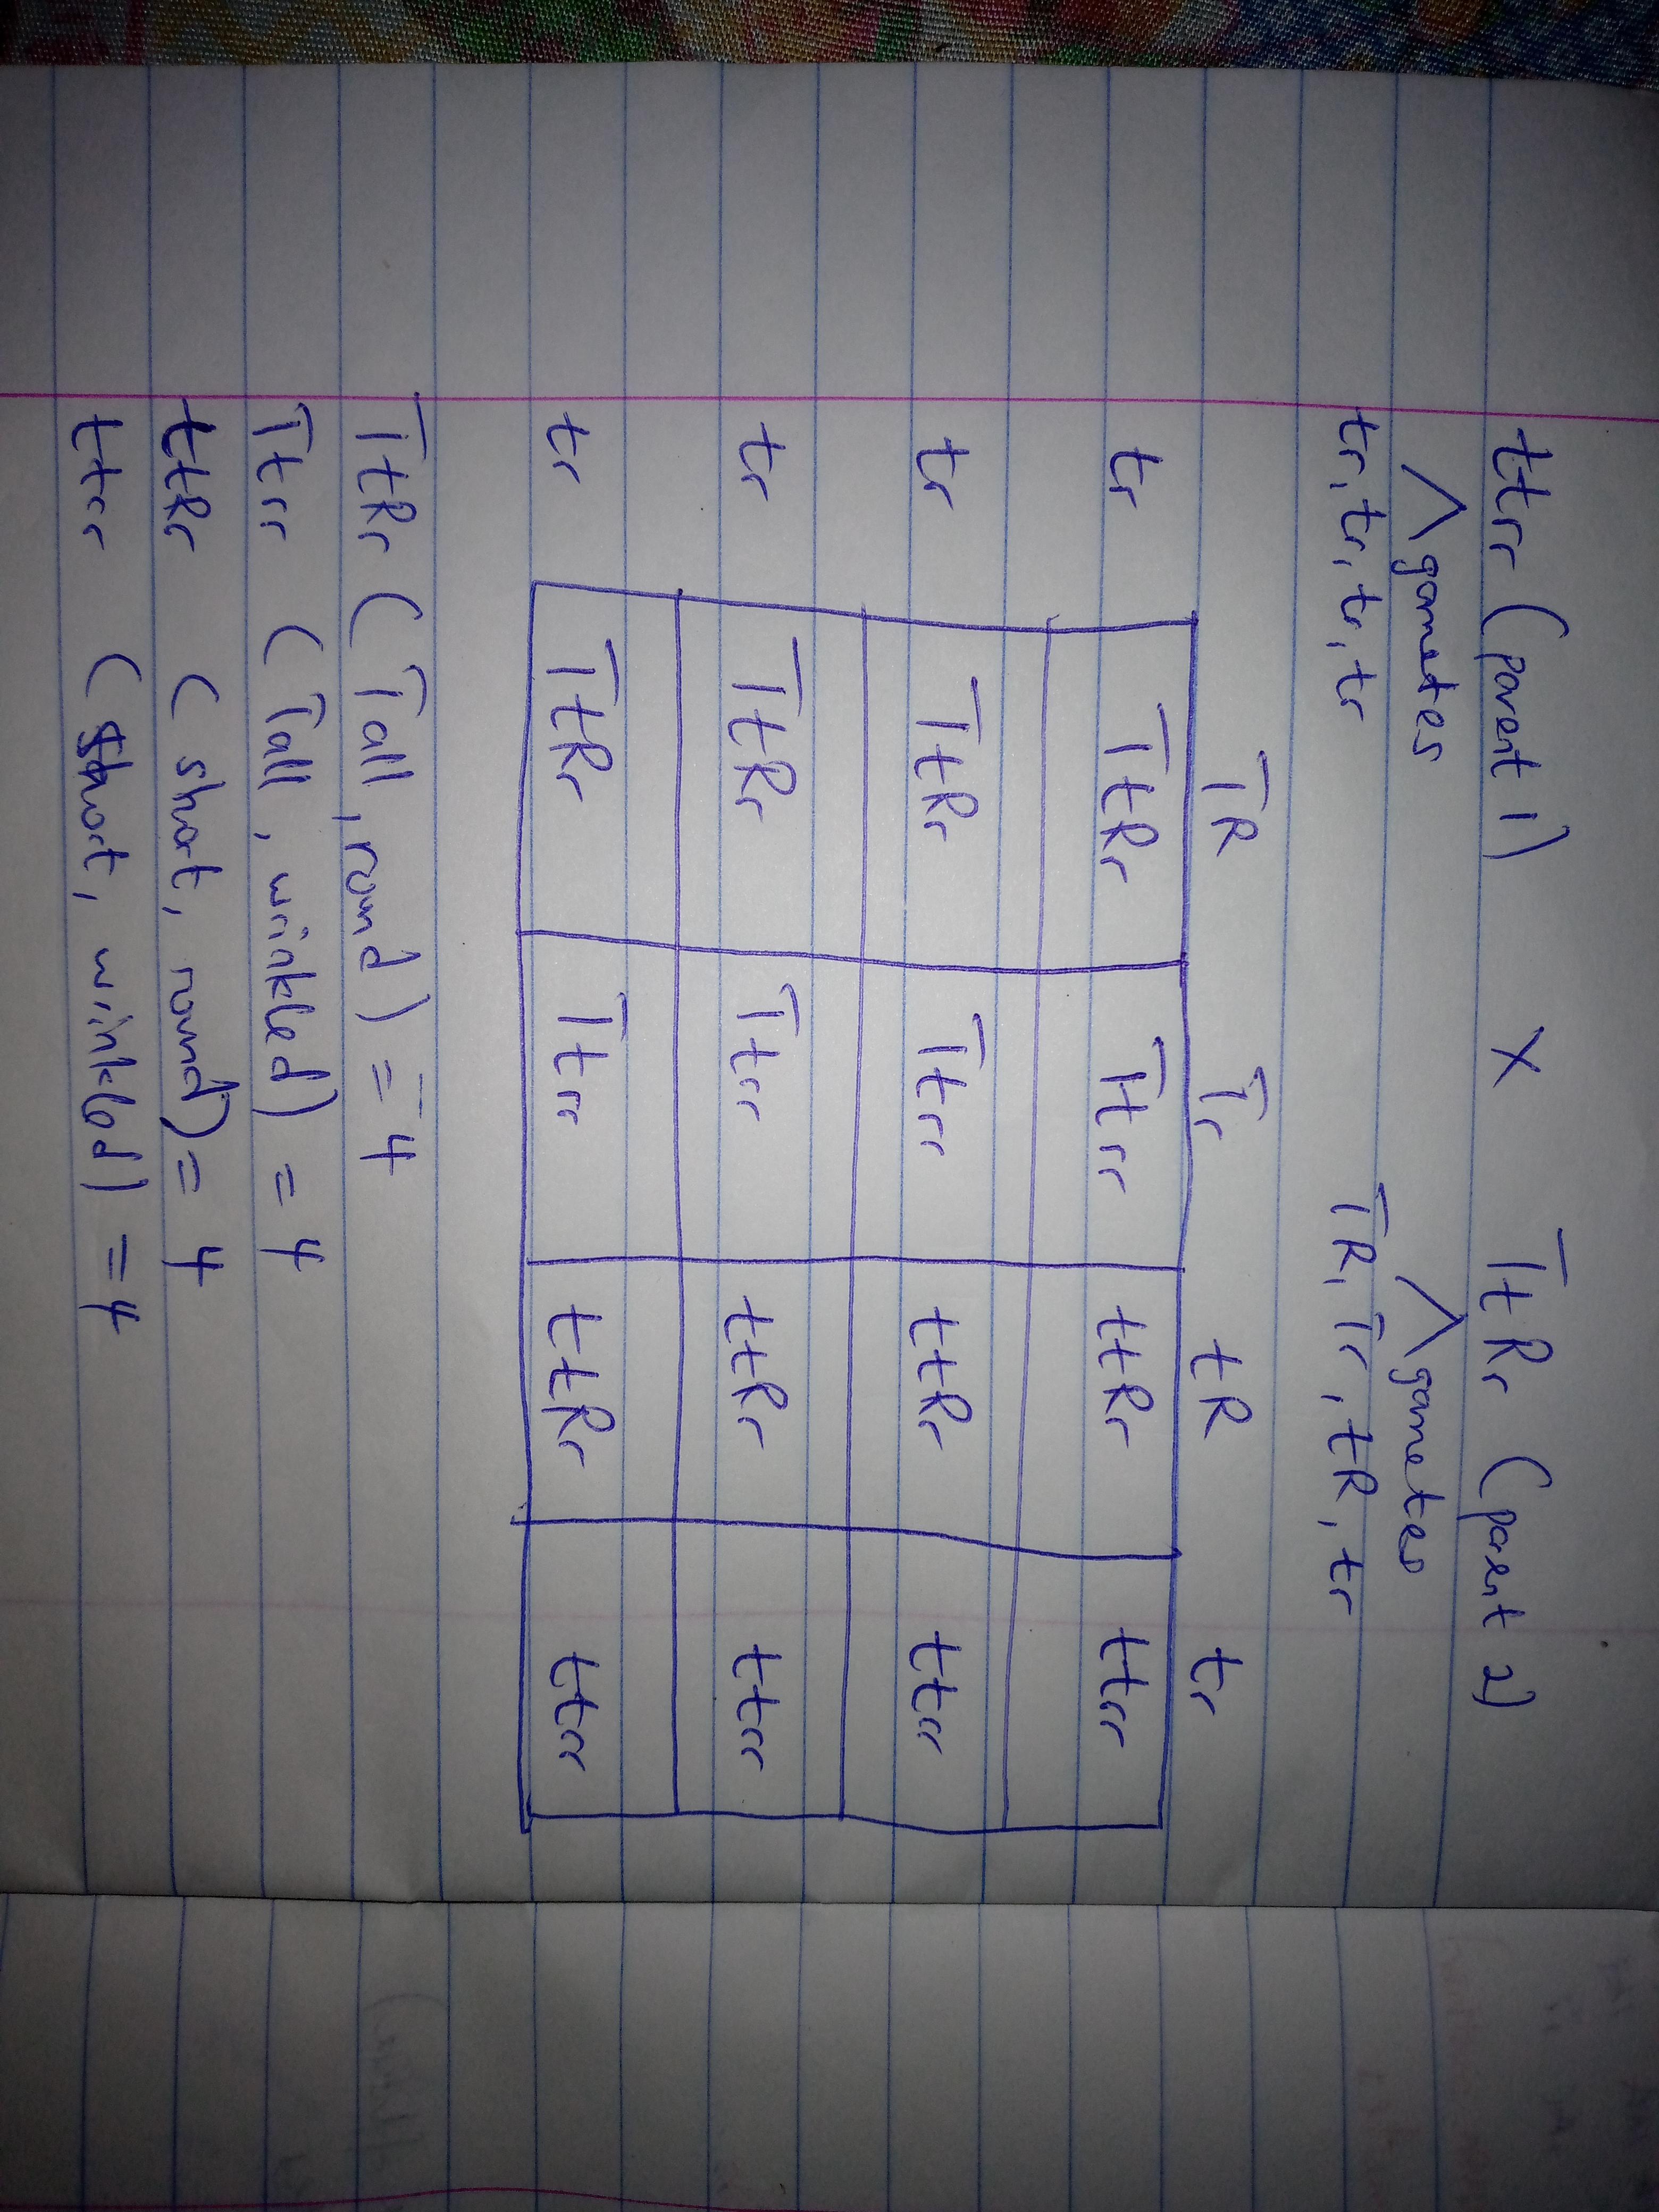 ttrr (parent 1) X TtRr (parent 2)
gametes gametes
tr, tr, tr, tr TR, Tr, tR, tr
TR Tr tR tr
tr TtRr Ttrr ttRr ttrr
tr TtRr Ttrr ttRr ttrr
tr TtRr Ttrr ttRr ttrr
tr TtRr Ttrr ttRr ttrr
TtRr (Tall, round) = 4
Ttrr (Tall, wrinkled) = 4
ttRr (short, round) = 4
ttrr (short, winkled) = 4